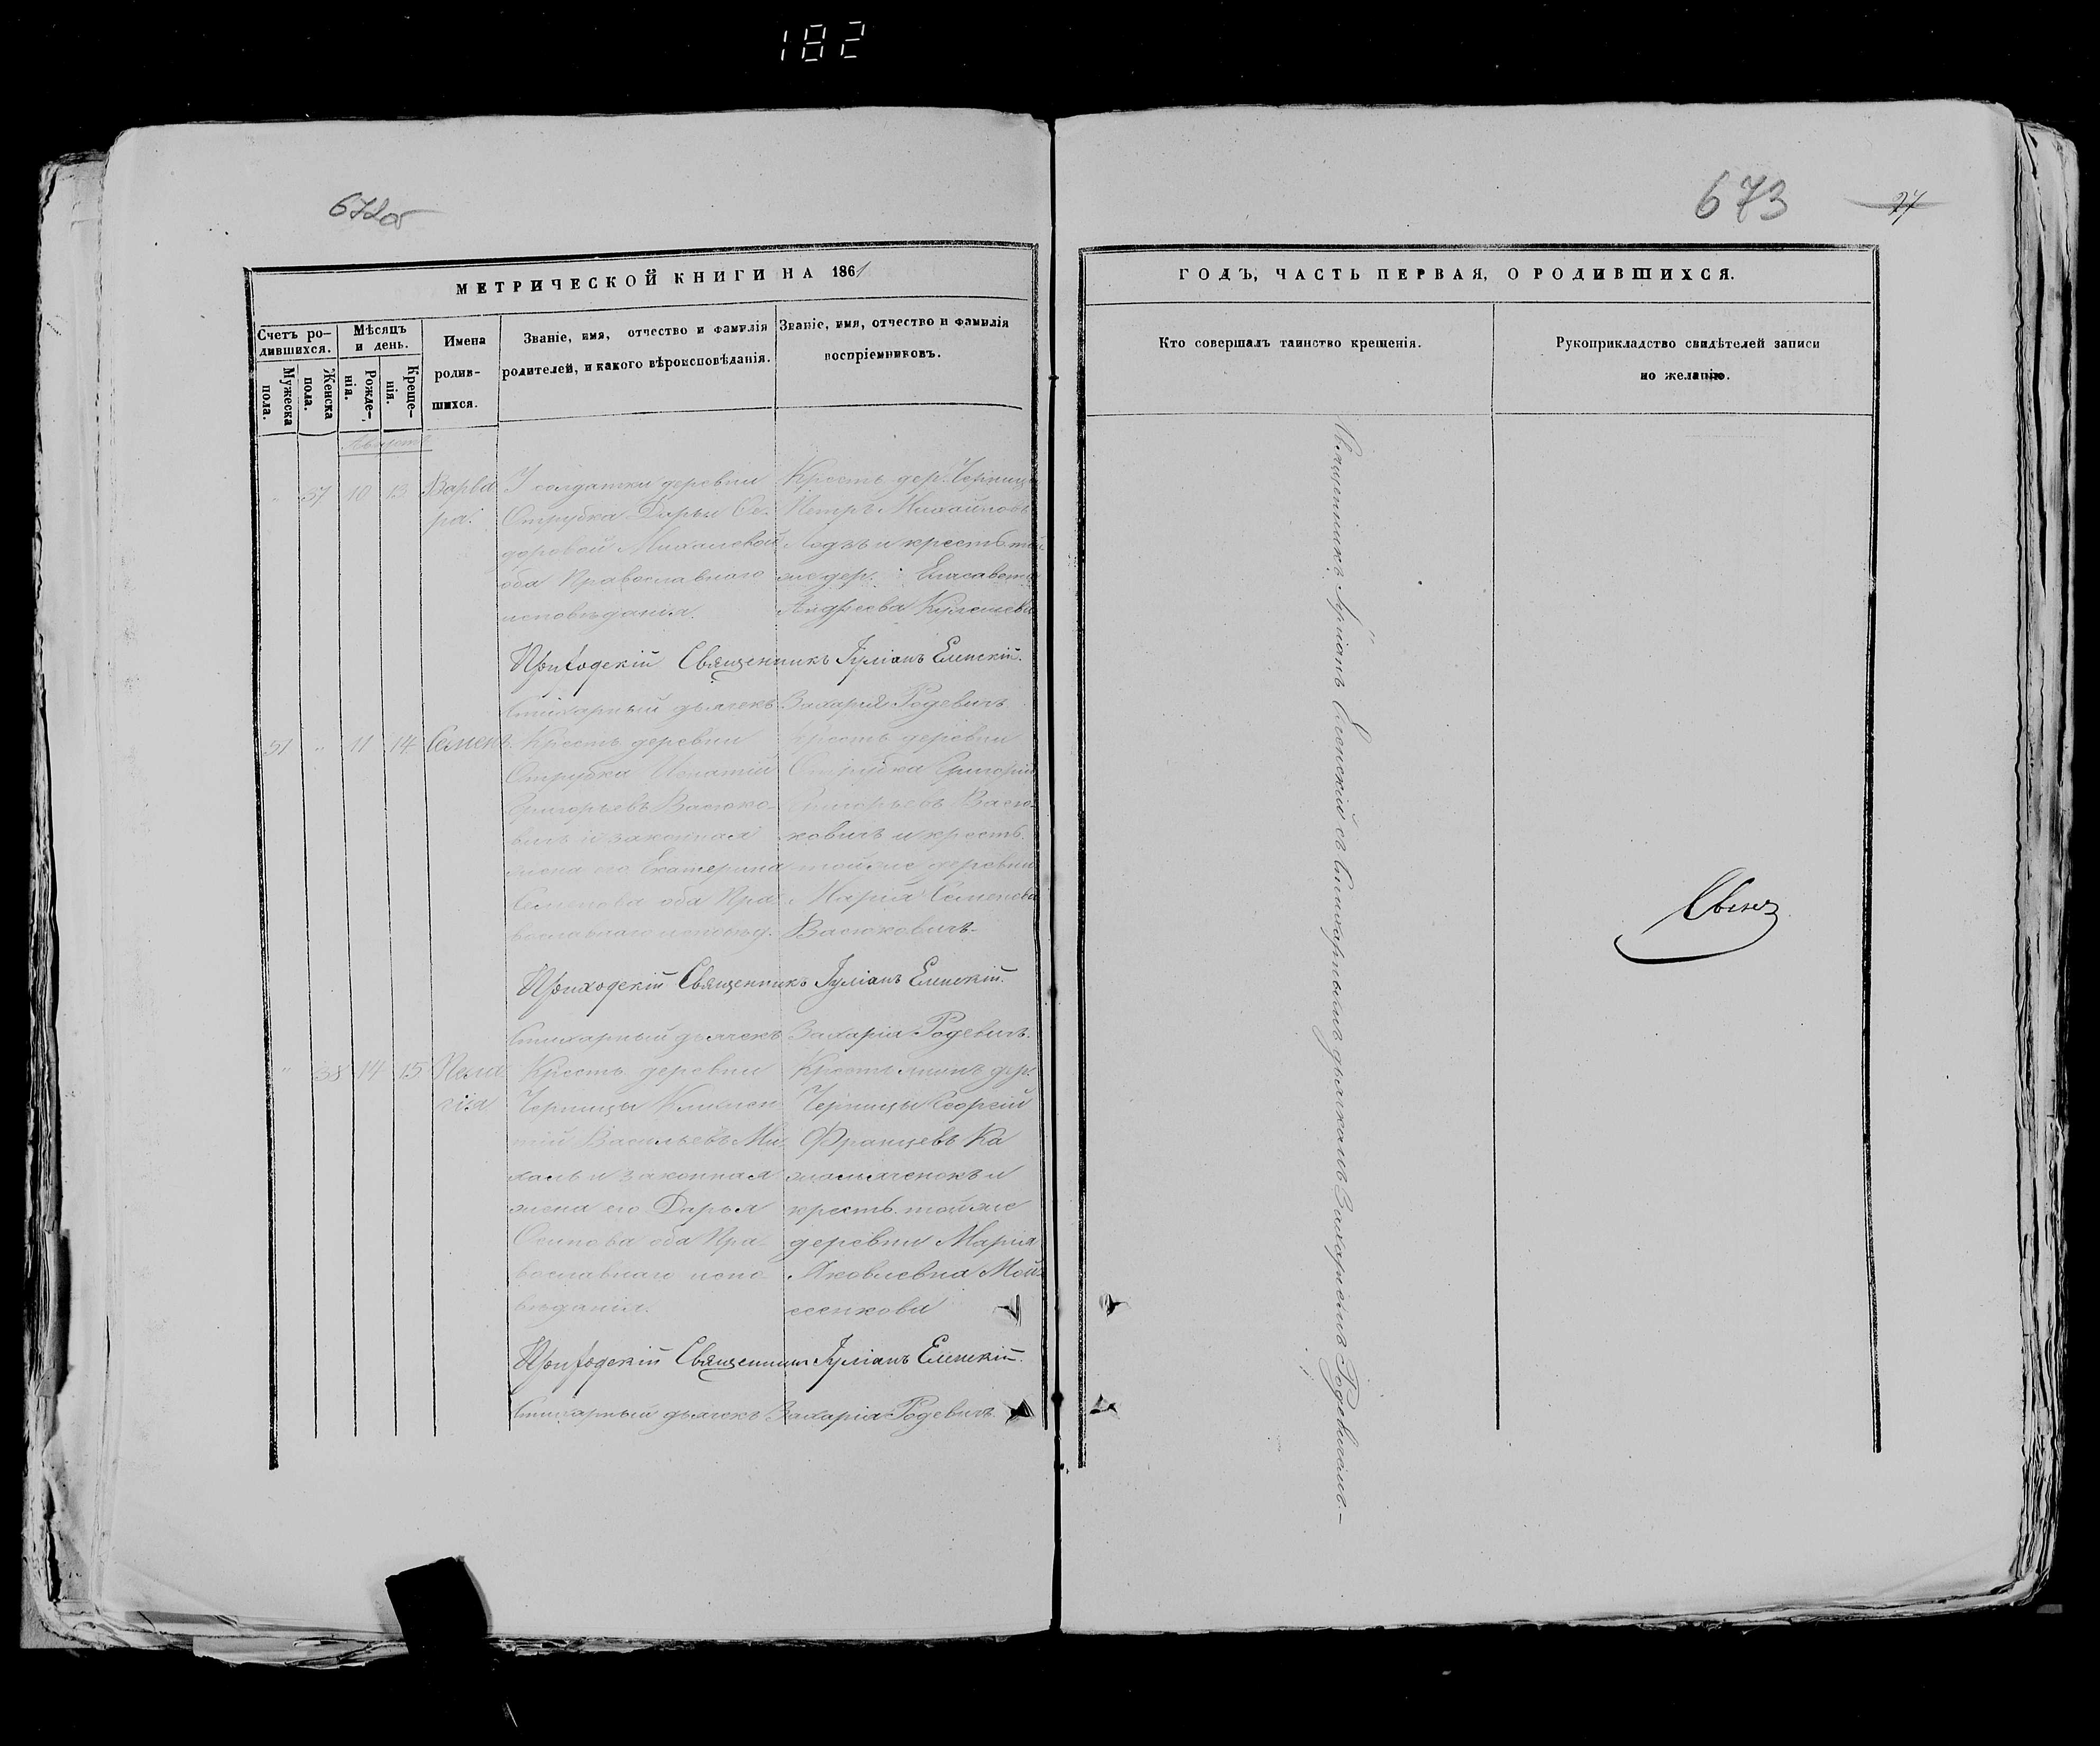 182
672об
673
27
МЕТРИЧЕСКОЙ КНИГИ НА 1861
ГОДЪ, ЧАСТЬ ПЕРВАЯ, О РОДИВШИХСЯ.
Счетъ ро-
дившихся.
Мужеска пола.
Женска пола.
Мѣсяцъ
и день.
Рожде-
нія.
Креще-
нія.
Имена
родив-
шихся.
Званіе, имя, отчество и фамилія
родителей, и какого вѣроисповѣданія.
Званіе, имя, отчество и фамилія
воспріемниковъ.
Кто совершалъ таинство крещенія.
Рукоприкладство свидѣтелей записи
по желанію.
Августъ
" 37 10 13 Варва
ра.
У солдатки деревни
Отрубка Дарьи Ѳе-
доровой Михалевой
оба Православнаго
исповѣданія.
Крест. дер. Черницы
Петръ Михайловъ
и крест. той
же дер. Елисавета
Андреева
Приходскій Священникъ Іуліанъ Еленскій.
Стихарный дьячекъ Захарія Родевичъ.
51 " 11 14 Семенъ.
Крест. деревни
Отрубка Игнатій
Григорьевъ Васюко-
вичъ и законная
жена его Екатерина
Семенова оба Пра-
вославнаго исповѣд.
Крест. деревни
Отрубка Григорій
Григорьевъ Васю-
ковичъ и крест.
тойже деревни
Марія Семенова
Васюковичъ.
Приходскій Священникъ Іуліанъ Еленскій.
Стихарный дьячекъ Захарія Родевичъ.
" 38 14 15 Пела
гія
Крест. деревни
Черницы Климен
тій Васильевъ Ми
халь и законная
жена его Дарья
Осипова оба Пра-
вославнаго испо-
вѣданія.
Крестьянинъ дер.
Черницы Георгій
Францевъ Ка
и
крест. тойже
деревни Марія
Яковлевна Мой
сеенкова
Приходскій Священникъ Іуліанъ Еленскій.
Стихарный дьячекъ Захарія Родевичъ.
Священникъ Іуліанъ Еленскій съ Стихарнымъ дьячкомъ Захаріемъ Родевичомъ.